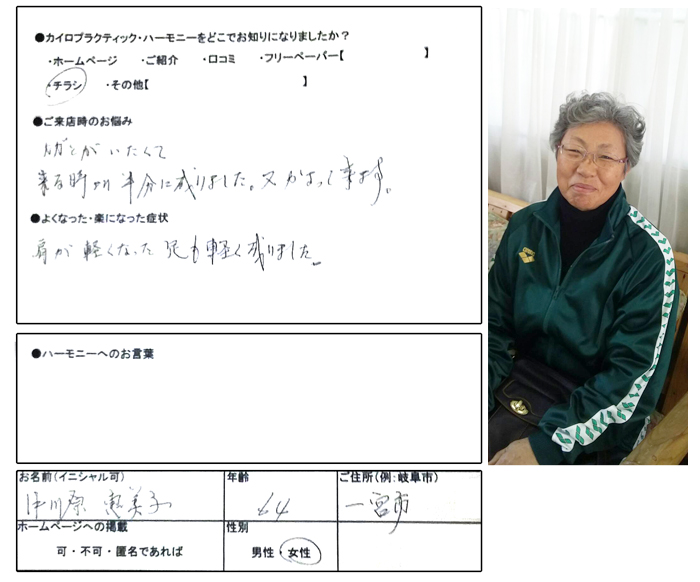 ●カイロプラクティック・ハーモニーをどこでお知りになりましたか？
・ホームページ ・ご紹介 ・口コミ ・フリーペーパー【 】
・チラシ ・その他【 】
●ご来店時のお悩み
がいたくて
来る時が半分に成りました。又かよって来ます。
●よくなった・楽になった症状
肩が軽くなった 足も軽く成りました。
●ハーモニーへのお言葉
お名前(イニシャル可) 年齢 ご住所(例:岐阜市)
中川原 恵美子 64 一宮市
ホームページへの掲載 性別
可・不可・匿名であれば 男性・女性